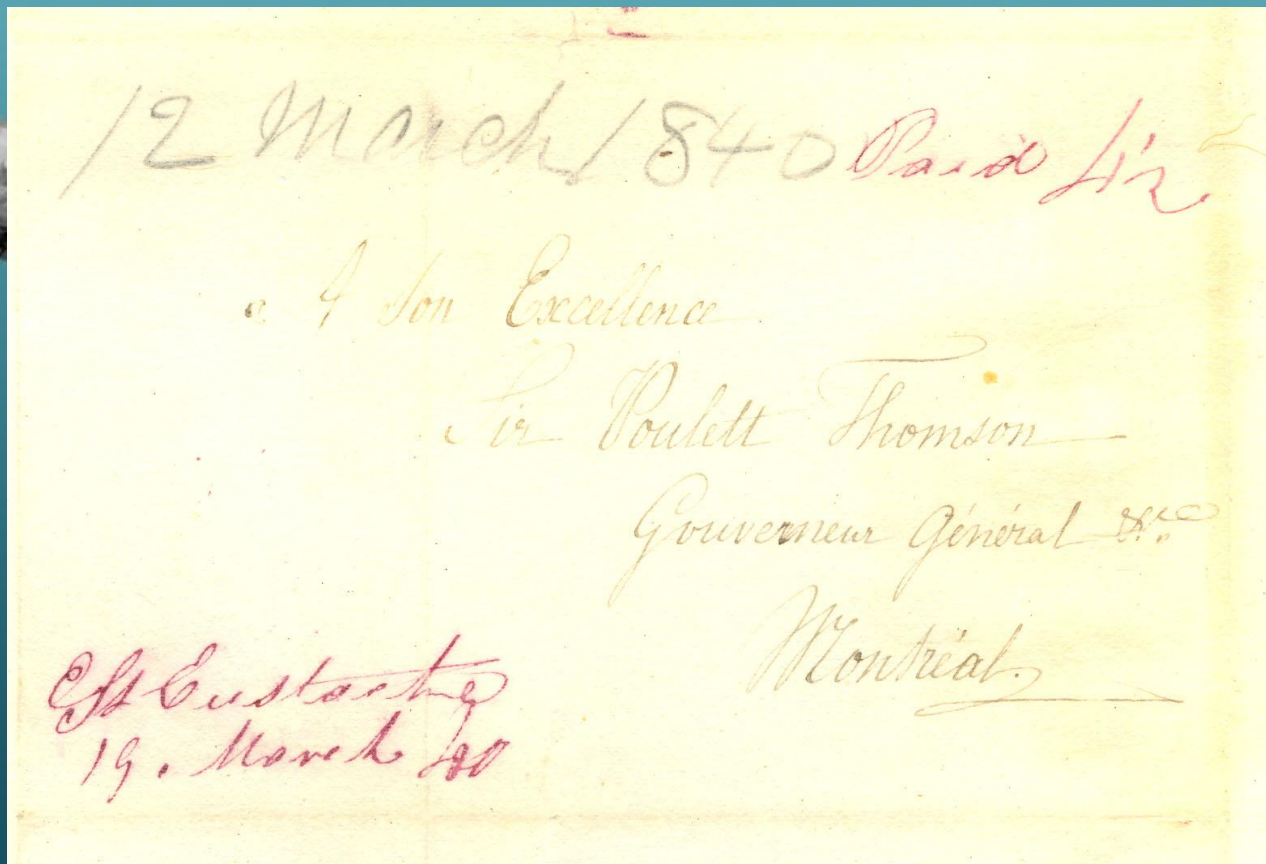 12 March 1840 Paid 4½
A Son Excellence
Sir Poulett Thomson
Gouverneur Général &c.
Montréal.
St Eustache
19. March /40